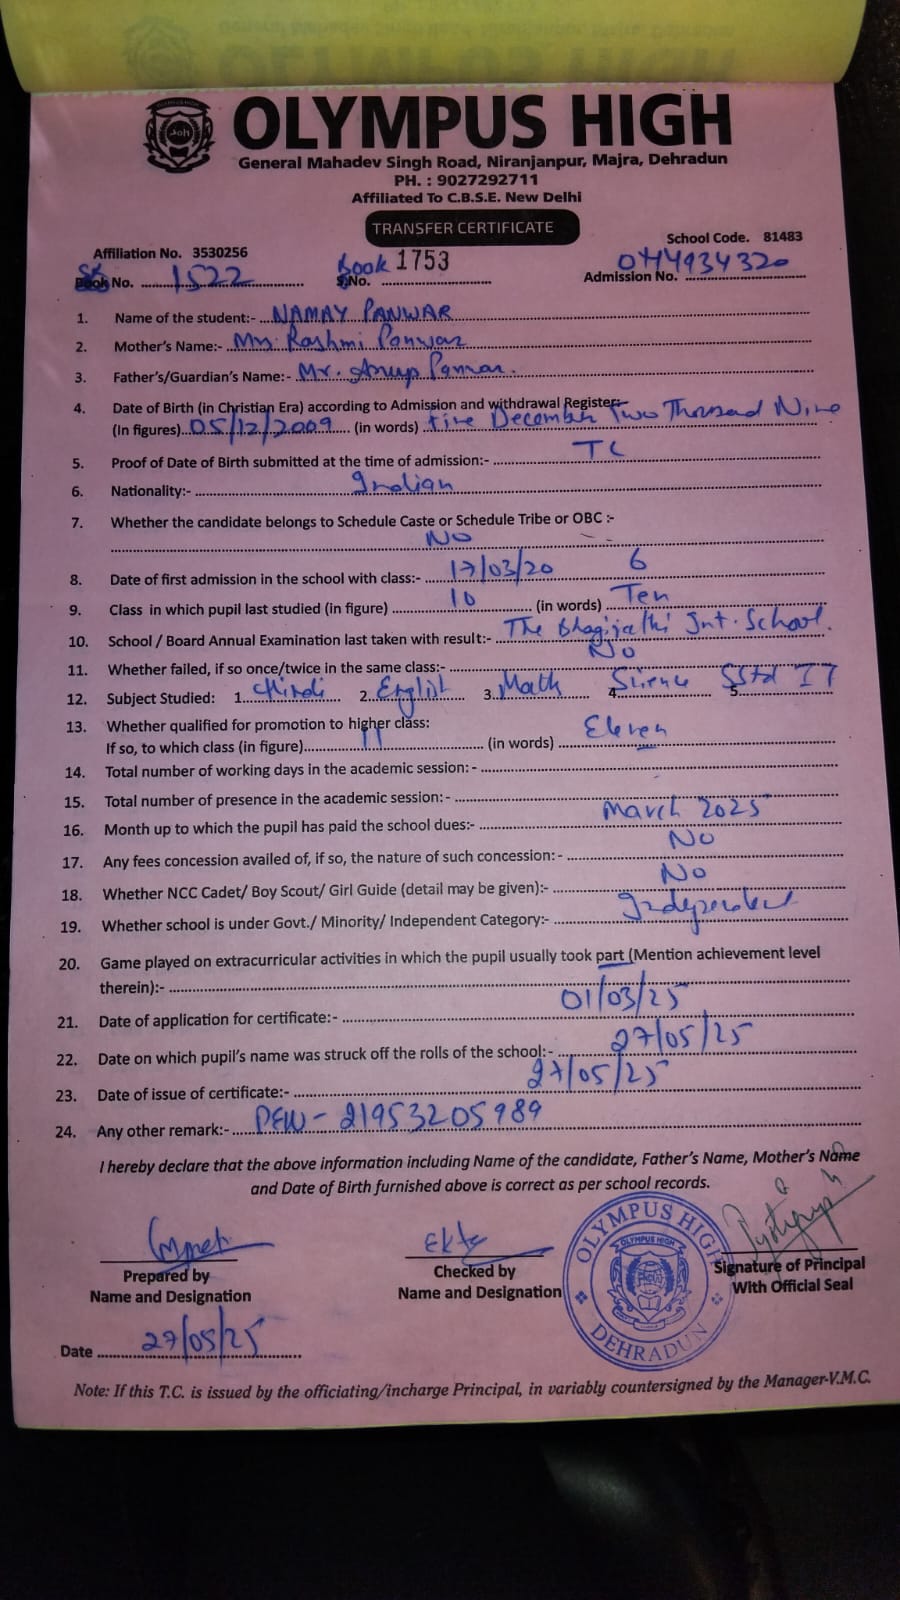 OLYMPUS HIGH
General Mahadev Singh Road, Niranjanpur, Majra, Dehradun
PH. : 9027292711
Affiliated To C.B.S.E. New Delhi
TRANSFER CERTIFICATE
Affiliation No. 3530256 School Code. 81483
No. 1522 Book No. 1753 Admission No.
1. Name of the student:- NAMAY PANWAR
2. Mother's Name:- Mrs. Rashmi Panwar
3. Father's/Guardian's Name:- Mr. Anup Panwar.
4. Date of Birth (in Christian Era) according to Admission and withdrawal Register:-
(In figures) 05/12/2009 (in words) Five December Two Thousand Nine
5. Proof of Date of Birth submitted at the time of admission:- TC
6. Nationality:- Indian
7. Whether the candidate belongs to Schedule Caste or Schedule Tribe or OBC :-
NO
8. Date of first admission in the school with class:- 17/03/20 6
9. Class in which pupil last studied (in figure) 10 (in words) Ten
10. School / Board Annual Examination last taken with result:- The Int. School.
11. Whether failed, if so once/twice in the same class:- No
12. Subject Studied: 1. Hindi 2. English 3. Math 4. Science 5. SStd IT
13. Whether qualified for promotion to higher class:
If so, to which class (in figure) 11 (in words) Eleven
14. Total number of working days in the academic session: -
15. Total number of presence in the academic session: -
16. Month up to which the pupil has paid the school dues:- March 2025
17. Any fees concession availed of, if so, the nature of such concession: - No
18. Whether NCC Cadet/ Boy Scout/ Girl Guide (detail may be given):- No
19. Whether school is under Govt./ Minority/ Independent Category:- Independent
20. Game played on extracurricular activities in which the pupil usually took part (Mention achievement level
therein):-
21. Date of application for certificate:- 01/03/25
22. Date on which pupil's name was struck off the rolls of the school:- 27/05/25
23. Date of issue of certificate:- 27/05/25
24. Any other remark:- PEN - 21953205989
I hereby declare that the above information including Name of the candidate, Father's Name, Mother's Name
and Date of Birth furnished above is correct as per school records.
Ekta
OLYMPUS HIGH
OLYMPUS HIGH
DEHRADUN
Prepared by Checked by Signature of Principal
Name and Designation Name and Designation With Official Seal
Date 27/05/25
Note: If this T.C. is issued by the officiating/incharge Principal, in variably countersigned by the Manager-V.M.C.